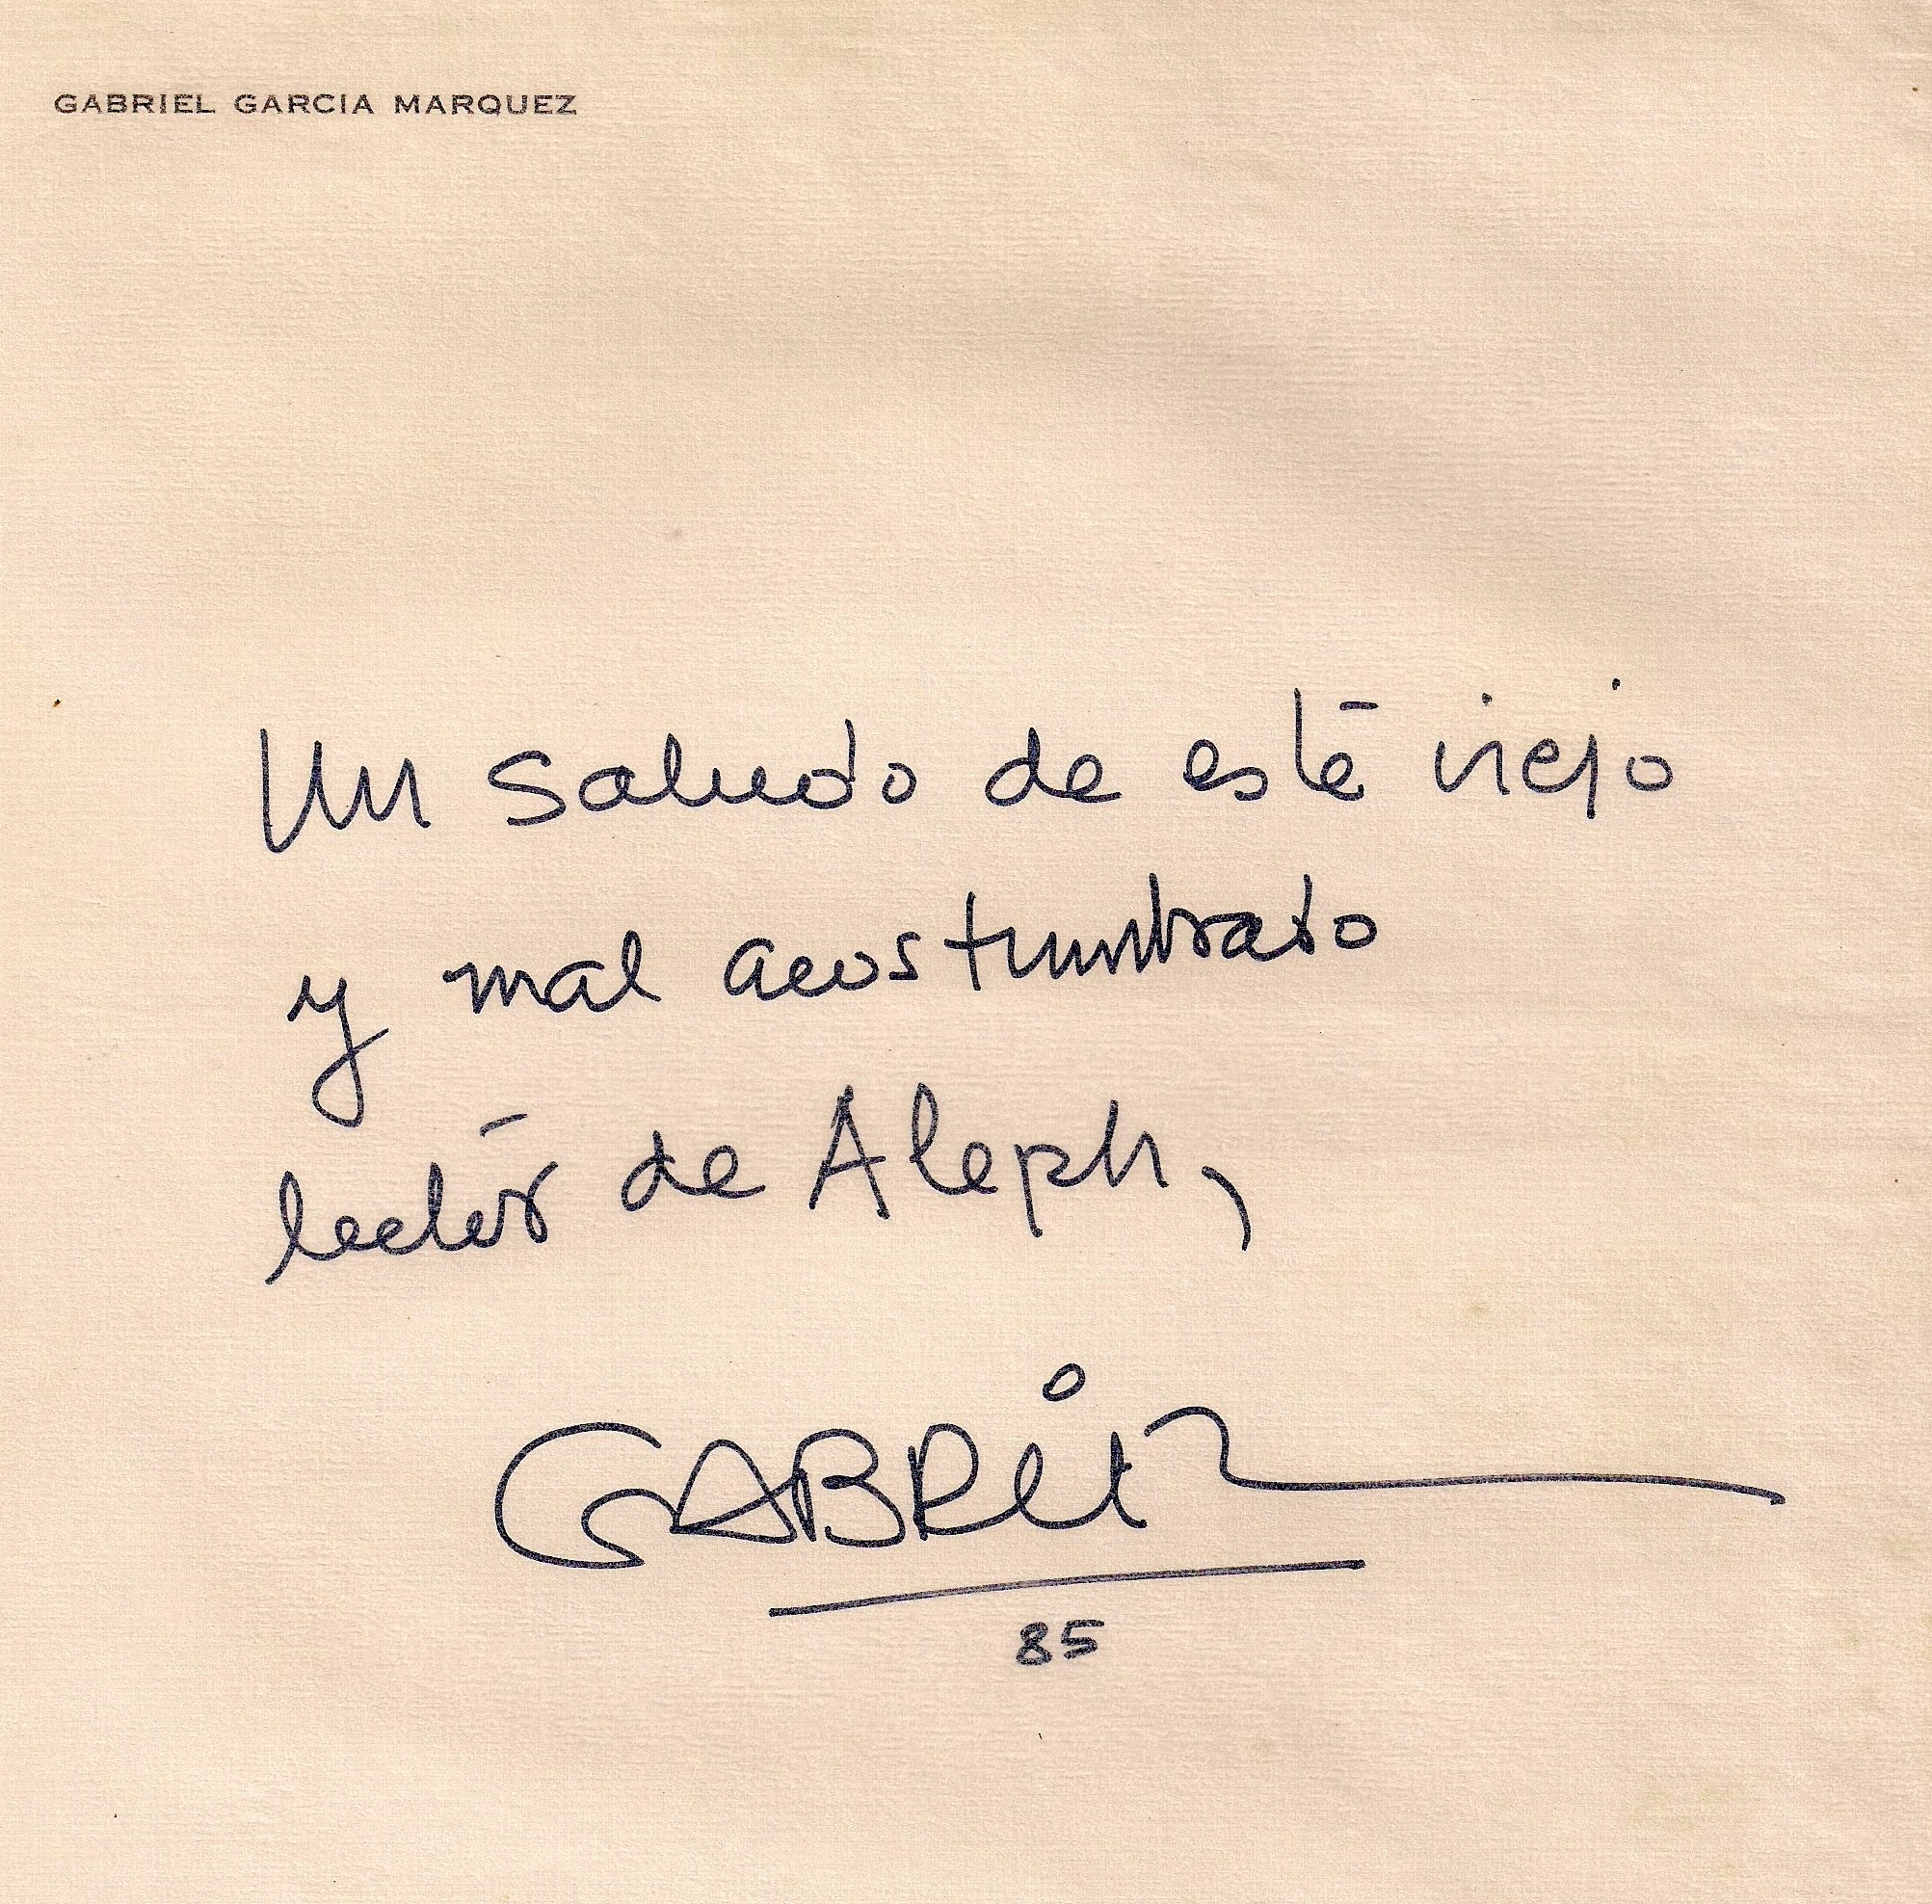 GABRIEL GARCIA MARQUEZ
Un saludo de este viejo
y mal acostumbrado
lector de Aleph,
GABRIEL
85